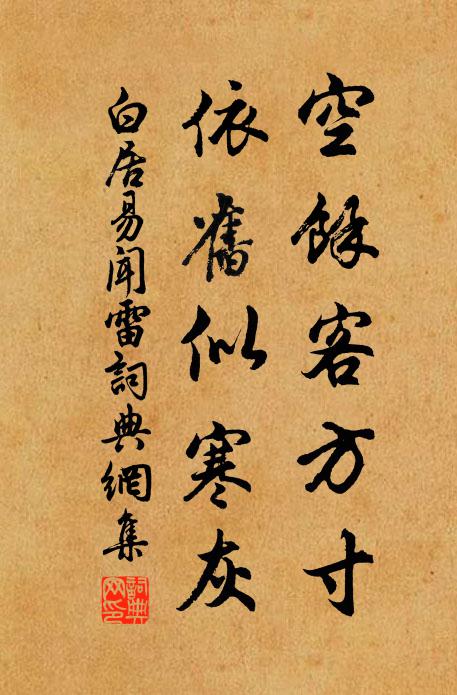 空餘客方寸
依舊似寒灰
白居易聞雷詞典網集
詞典網印